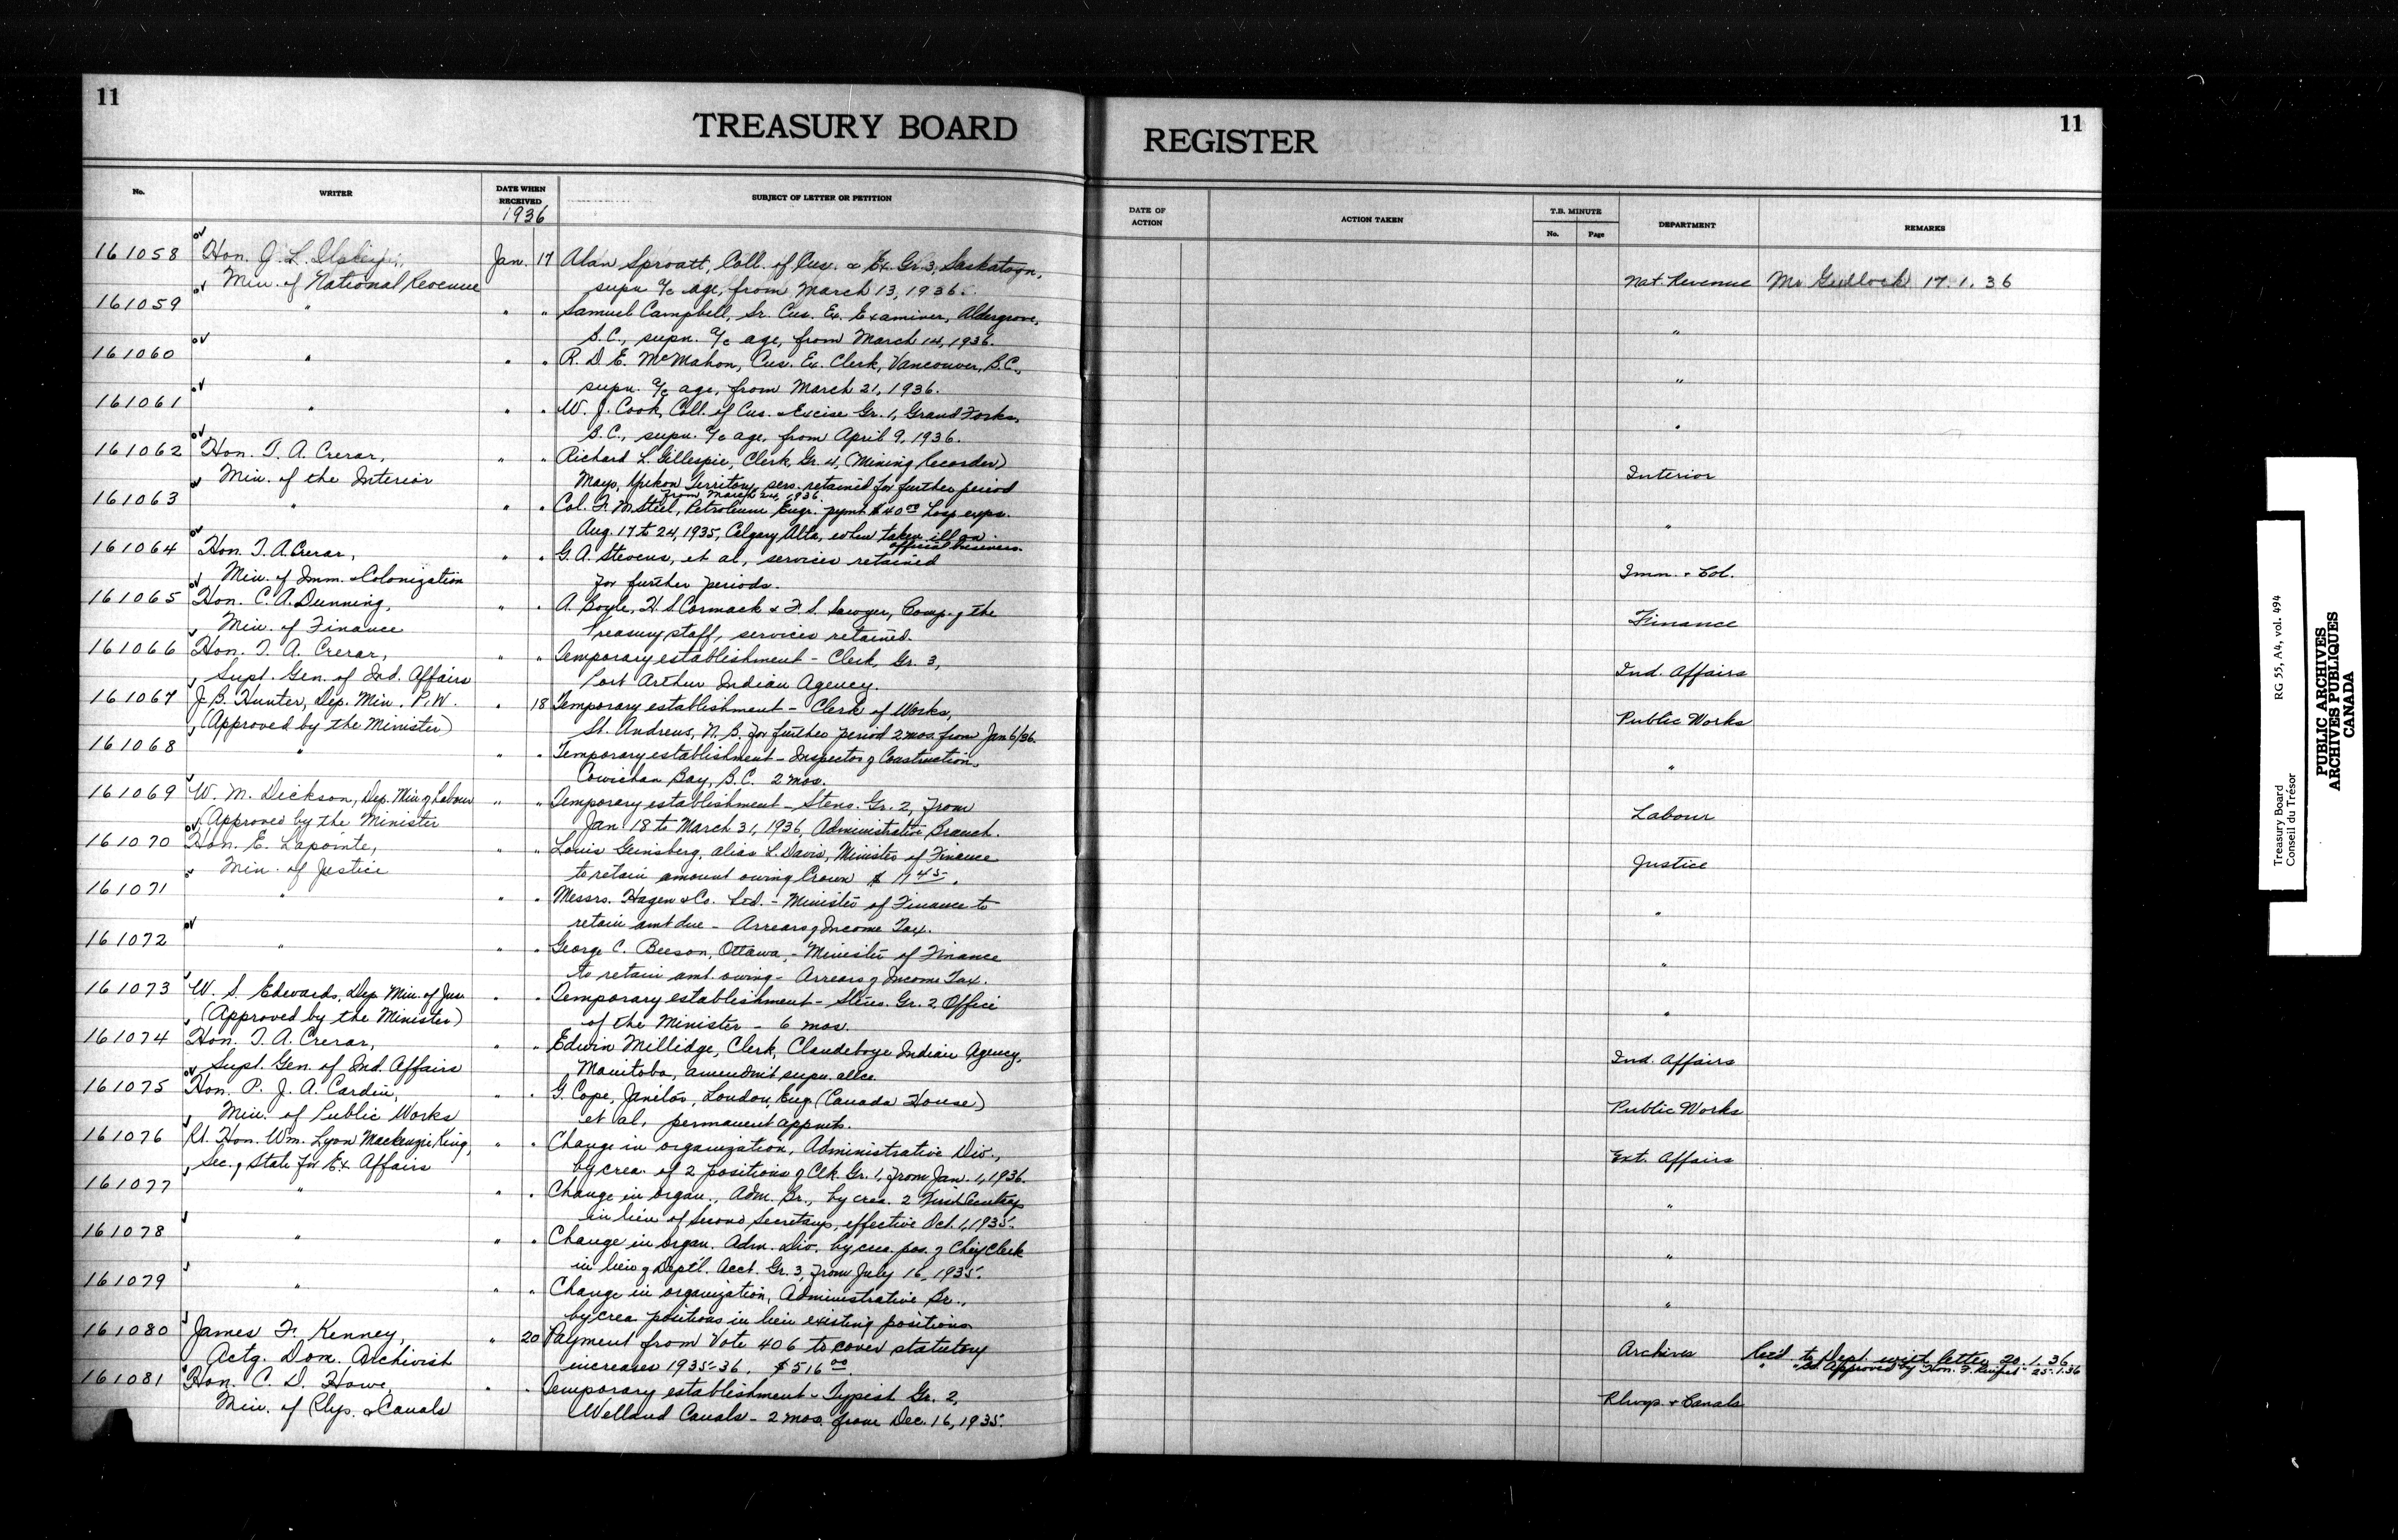 11
TREASURY BOARD
REGISTER
11
No.
WRITER
DATE WHEN RECEIVED
1936
SUBJECT OF LETTER OR PETITION
DATE OF ACTION
ACTION TAKEN
T.B. MINUTE
No.
Page
DEPARTMENT
REMARKS
161058 Hon. J. L. Ilsley, Jan. 17 Alan Sproatt, Coll. of Cus. & Ex. Gr. 3, Saskatoon, Nat. Revenue 17.1.36
Min. of National Revenue supn a/c age, from March 13, 1936.
161059 " " " Samuel Campbell, Sr. Cus. Ex. Examiner, Aldergrove, "
B.C., supn. a/c age, from March 14, 1936.
161060 " " " R. D. E. McMahon, Cus. Ex. Clerk, Vancouver, B.C., "
supn. a/c age, from March 21, 1936.
161061 " " " W. J. Cook, Coll. of Cus. & Excise Gr. 1, Grand Forks, "
B.C., supn. a/c age, from April 9, 1936.
161062 Hon. T. A. Crerar, " " Richard L. Gillespie, Clerk, Gr. 4, (Mining Recorder) Interior
Min. of the Interior Mayo, Yukon Territory, sers. retained for further period
from March 24, 1936.
161063 " " " Col. F. M. Steel, Petroleum Engr. pymt $40.00 hosp exps. "
Aug. 17 to 24, 1935, Calgary Alta, when taken ill on
official business.
161064 Hon. T. A. Crerar, " " G. A. Stevens, et al, services retained Imm. & Col.
Min. of Imm. & Colonization for further periods.
161065 Hon. C. A. Dunning, " " A. Boyle, H. S. Cormack & F. S. Sawyer, Comp. of the Finance
Min. of Finance Treasury staff, services retained.
161066 Hon. T. A. Crerar, " " Temporary establishment - Clerk, Gr. 3, Ind. Affairs
Supt. Gen. of Ind. Affairs Port Arthur Indian Agency.
161067 J. B. Hunter, Dep. Min. P.W. " 18 Temporary establishment - Clerk of Works, Public Works
(Approved by the Minister) St. Andrews, N.B. for further period 2 mos. from Jan 6/36.
161068 " " " Temporary establishment - Inspector of Construction, "
Cowichan Bay, B.C. 2 mos.
161069 W. M. Dickson, Dep. Min of Labour " " Temporary establishment - Steno. Gr. 2, from Labour
(Approved by the Minister Jan 18 to March 31, 1936, Administrative Branch.
161070 Hon. E. Lapointe, " " Louis Geinsberg, alias L. Davis, Minister of Finance Justice
Min. of Justice to retain amount owing Crown
161071 " " " Messrs. Hagen & Co. Ltd. - Minister of Finance to "
retain amt due - Arrears of Income Tax.
161072 " " " George C. Beeson, Ottawa, - Minister of Finance "
to retain amt. owing - Arrears of Income Tax.
161073 W. S. Edwards, Dep. Min. of Jus. " " Temporary establishment - Steno. Gr. 2 Office "
(Approved by the Minister) of the Minister - 6 mos.
161074 Hon. T. A. Crerar, " " Edwin Millidge, Clerk, Clandeboye Indian Agency, Ind. Affairs
Supt. Gen. of Ind. Affairs Manitoba, amendm't supn. allce.
161075 Hon. P. J. A. Cardin, " " G. Cope, Janitor, London, Eng. (Canada House) Public Works
Min. of Public Works et al, permanent appmts.
161076 Rt. Hon. Wm. Lyon Mackenzie King, " " Change in organization, Administrative Div., Ext. Affairs
Sec. of State for Ex. Affairs by crea. of 2 positions of Clk. Gr. 1, from Jan. 1, 1936.
161077 " " " Change in organ., Adm. Br., by crea. 2 First Secretarys "
in lieu of Second Secretarys, effective Oct. 1, 1935.
161078 " " " Change in organ. Adm. Div. by crea. pos. of Chief Clerk "
in lieu of Dept'l. Acct. Gr. 3, from July 16, 1935.
161079 " " " Change in organization, Administrative Br., "
by crea positions in lieu existing positions
161080 James F. Kenney, " 20 Payment from Vote 406 to cover statutory Archives Ret'd. to Dept. with letter 20.1.36
Actg. Dom. Archivist increases 1935-36. $516.00 " " Approved by Hon. F. 25.1.36
161081 Hon. C. D. Howe, " " Temporary establishment - Typist Gr. 2, Rlwys. & Canals
Min. of Rlys. & Canals Welland Canals - 2 mos. from Dec. 16, 1935.
Treasury Board
Conseil du Trésor
RG 55, A4, vol. 494
PUBLIC ARCHIVES
ARCHIVES PUBLIQUES
CANADA